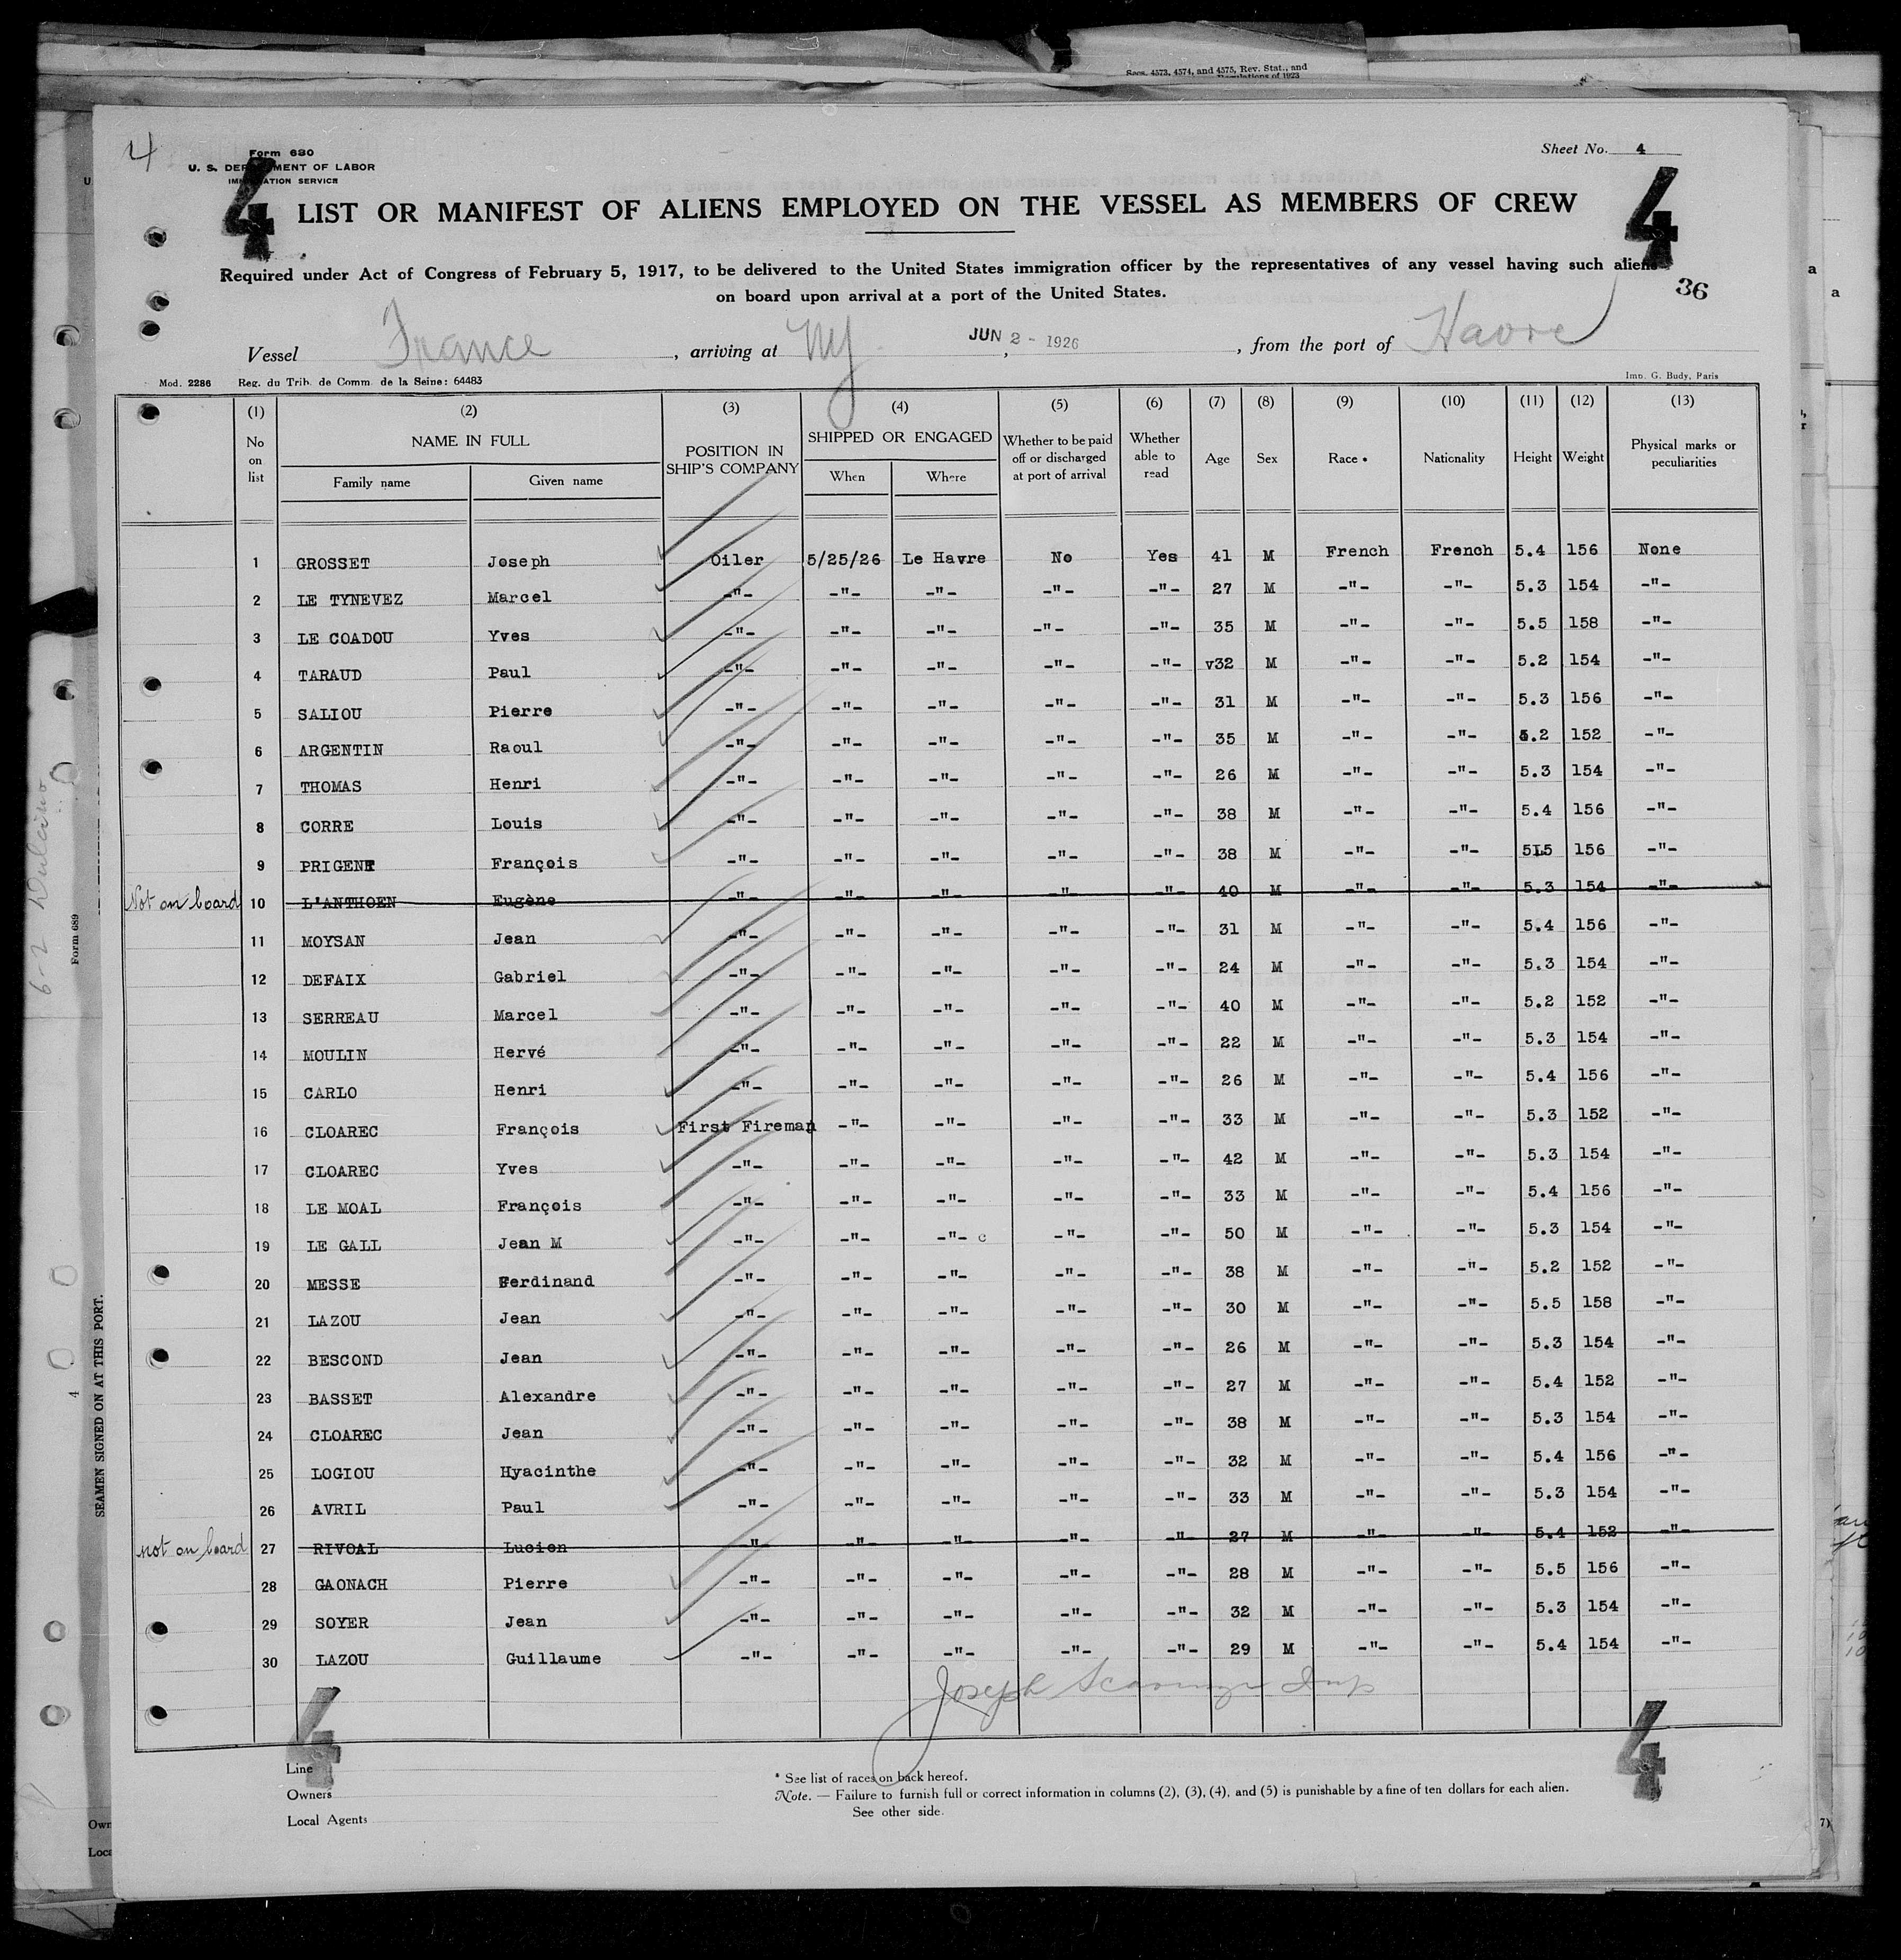 Secs. 4573, 4574, and 4575, Rev. Stat., and
Regulations of 1923
4
Form 680
U. S. DEPARTMENT OF LABOR
IMMIGRATION SERVICE
Sheet No. 4
4 4
LIST OR MANIFEST OF ALIENS EMPLOYED ON THE VESSEL AS MEMBERS OF CREW
Required under Act of Congress of February 5, 1917, to be delivered to the United States immigration officer by the representatives of any vessel having such aliens
on board upon arrival at a port of the United States.
36
Vessel France, arriving at NY, JUN 2 - 1926, from the port of Havre
Mod. 2286 Reg. du Trib. de Comm. de la Seine: 64483 Imp. G. Budy, Paris
(1) (2) (3) (4) (5) (6) (7) (8) (9) (10) (11) (12) (13)
No on list NAME IN FULL Family name Given name POSITION IN SHIP'S COMPANY SHIPPED OR ENGAGED When Where Whether to be paid off or discharged at port of arrival Whether able to read Age Sex Race * Nationality Height Weight Physical marks or peculiarities
1 GROSSET Joseph Oiler 5/25/26 Le Havre No Yes 41 M French French 5.4 156 None
2 LE TYNEVEZ Marcel -"- -"- -"- -"- -"- 27 M -"- -"- 5.3 154 -"-
3 LE COADOU Yves -"- -"- -"- -"- -"- 35 M -"- -"- 5.5 158 -"-
4 TARAUD Paul -"- -"- -"- -"- -"- v32 M -"- -"- 5.2 154 -"-
5 SALIOU Pierre -"- -"- -"- -"- -"- 31 M -"- -"- 5.3 156 -"-
6 ARGENTIN Raoul -"- -"- -"- -"- -"- 35 M -"- -"- 5.2 152 -"-
7 THOMAS Henri -"- -"- -"- -"- -"- 26 M -"- -"- 5.3 154 -"-
8 CORRE Louis -"- -"- -"- -"- -"- 38 M -"- -"- 5.4 156 -"-
9 PRIGENT François -"- -"- -"- -"- -"- 38 M -"- -"- 5L5 156 -"-
Not on board 10 L'ANTHOEN Eugène -"- -"- -"- -"- -"- 40 M -"- -"- 5.3 154 -"-
11 MOYSAN Jean -"- -"- -"- -"- -"- 31 M -"- -"- 5.4 156 -"-
12 DEFAIX Gabriel -"- -"- -"- -"- -"- 24 M -"- -"- 5.3 154 -"-
13 SERREAU Marcel -"- -"- -"- -"- -"- 40 M -"- -"- 5.2 152 -"-
14 MOULIN Hervé -"- -"- -"- -"- -"- 22 M -"- -"- 5.3 154 -"-
15 CARLO Henri -"- -"- -"- -"- -"- 26 M -"- -"- 5.4 156 -"-
16 CLOAREC François First Fireman -"- -"- -"- -"- 33 M -"- -"- 5.3 152 -"-
17 CLOAREC Yves -"- -"- -"- -"- -"- 42 M -"- -"- 5.3 154 -"-
18 LE MOAL François -"- -"- -"- -"- -"- 33 M -"- -"- 5.4 156 -"-
19 LE GALL Jean M -"- -"- -"- c -"- -"- 50 M -"- -"- 5.3 154 -"-
20 MESSE Ferdinand -"- -"- -"- -"- -"- 38 M -"- -"- 5.2 152 -"-
21 LAZOU Jean -"- -"- -"- -"- -"- 30 M -"- -"- 5.5 158 -"-
22 BESCOND Jean -"- -"- -"- -"- -"- 26 M -"- -"- 5.3 154 -"-
23 BASSET Alexandre -"- -"- -"- -"- -"- 27 M -"- -"- 5.4 152 -"-
24 CLOAREC Jean -"- -"- -"- -"- -"- 38 M -"- -"- 5.3 154 -"-
25 LOGIOU Hyacinthe -"- -"- -"- -"- -"- 32 M -"- -"- 5.4 156 -"-
26 AVRIL Paul -"- -"- -"- -"- -"- 33 M -"- -"- 5.3 154 -"-
not on board 27 RIVOAL Lucien -"- -"- -"- -"- -"- 27 M -"- -"- 5.4 152 -"-
28 GAONACH Pierre -"- -"- -"- -"- -"- 28 M -"- -"- 5.5 156 -"-
29 SOYER Jean -"- -"- -"- -"- -"- 32 M -"- -"- 5.3 154 -"-
30 LAZOU Guillaume -"- -"- -"- -"- -"- 29 M -"- -"- 5.4 154 -"-
Joseph Insp
4 4
Line
Owners
Local Agents
* See list of races on back hereof.
Note. — Failure to furnish full or correct information in columns (2), (3), (4), and (5) is punishable by a fine of ten dollars for each alien.
See other side.
6-2 Dulcino
Form 689
SEAMEN SIGNED ON AT THIS PORT.
4